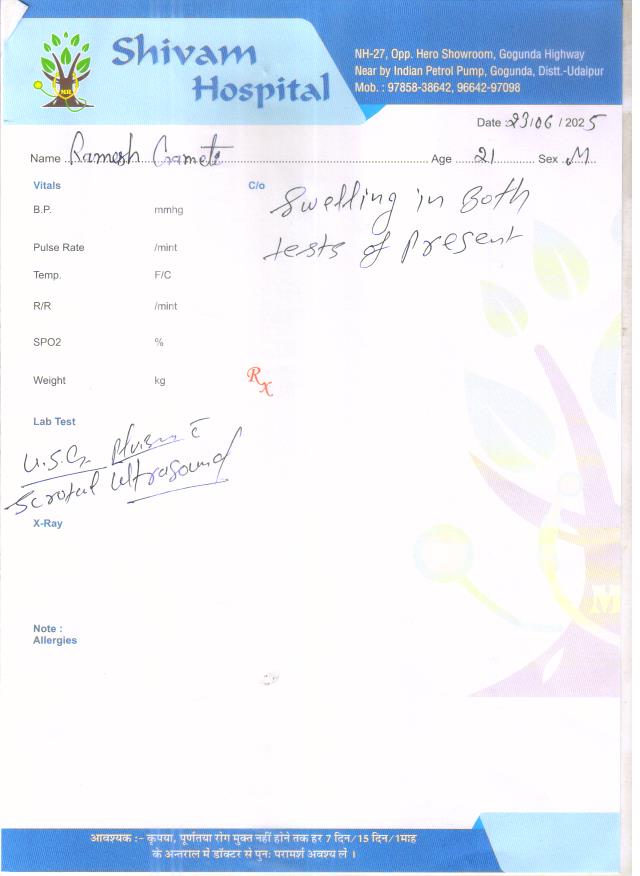 Shivam
Hospital
NH-27, Opp. Hero Showroom, Gogunda Highway
Near by Indian Petrol Pump, Gogunda, Distt.-Udaipur
Mob. : 97858-38642, 96642-97098
MR
Date : 23/06 / 2025
Name Ramesh Gameti Age 21 Sex M
Vitals
C/o Swelling in Both
tests of present
B.P. mmhg
Pulse Rate /mint
Temp. F/C
R/R /mint
SPO2 %
Weight kg
Rx
Lab Test
U.S.G.
Scrotal ultrasound
X-Ray
Note :
Allergies
आवश्यक :- कृपया, पूर्णतया रोग मुक्त नहीं होने तक हर 7 दिन/15 दिन/1माह
के अन्तराल में डॉक्टर से पुनः परामर्श अवश्य लें ।